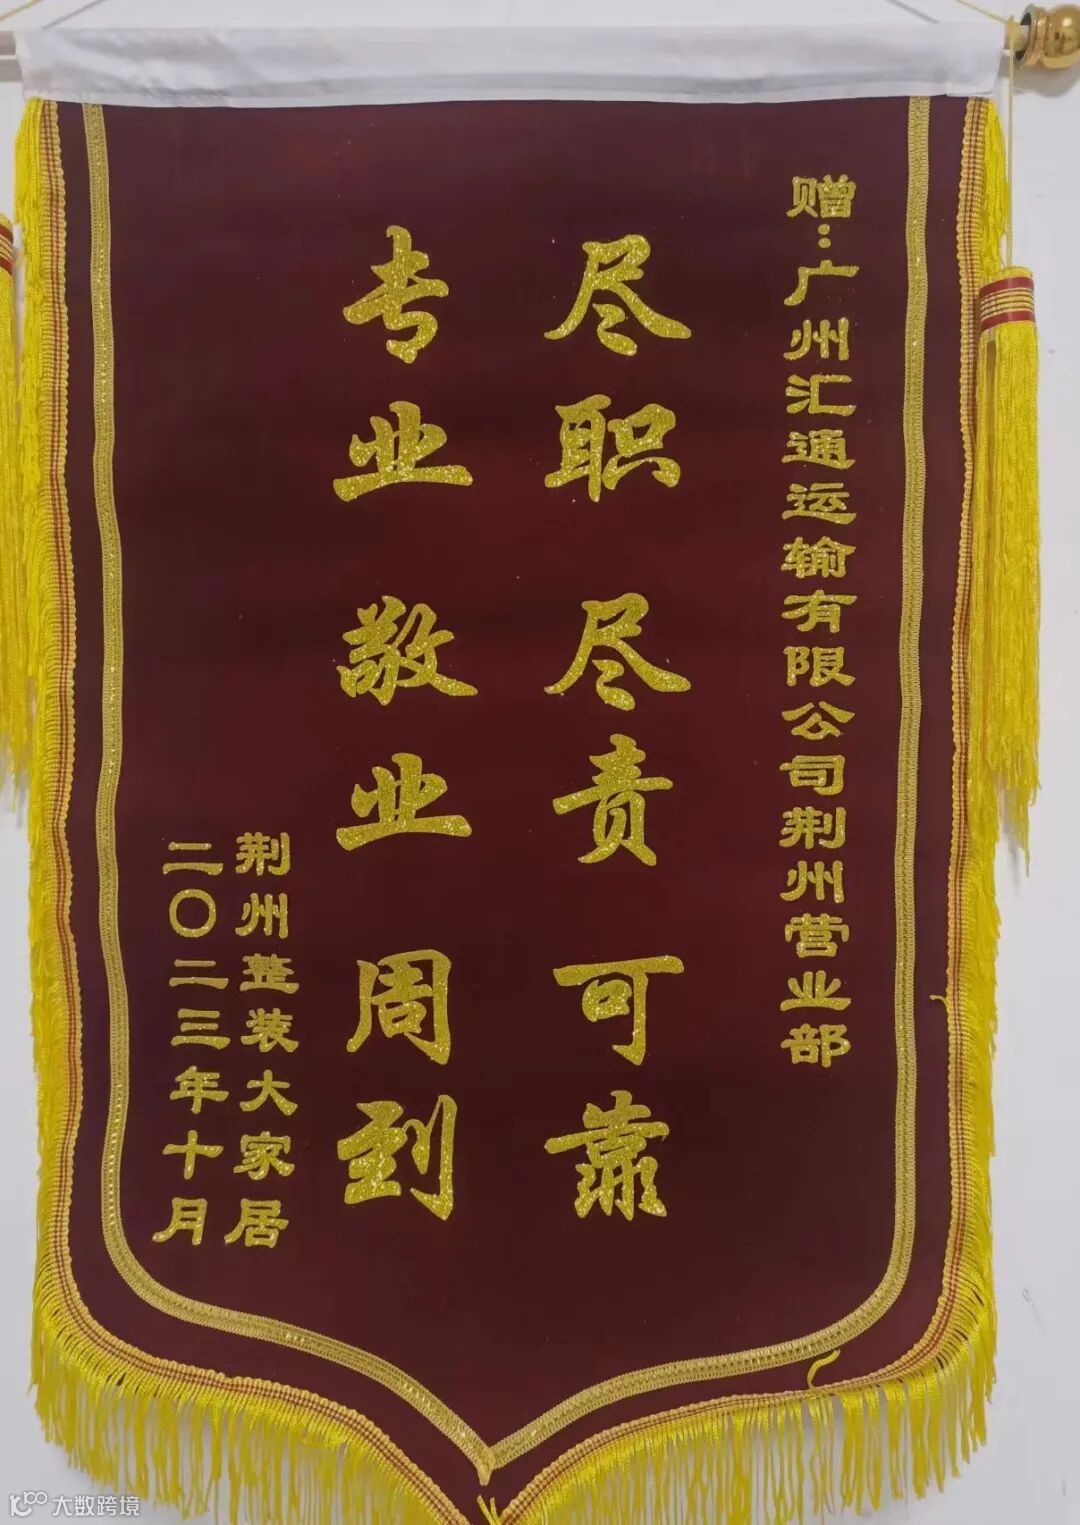 赠：广州汇通运输有限公司荆州营业部
尽职尽责可靠
专业敬业周到
荆州整装大家居
二〇二三年十月
大数跨境